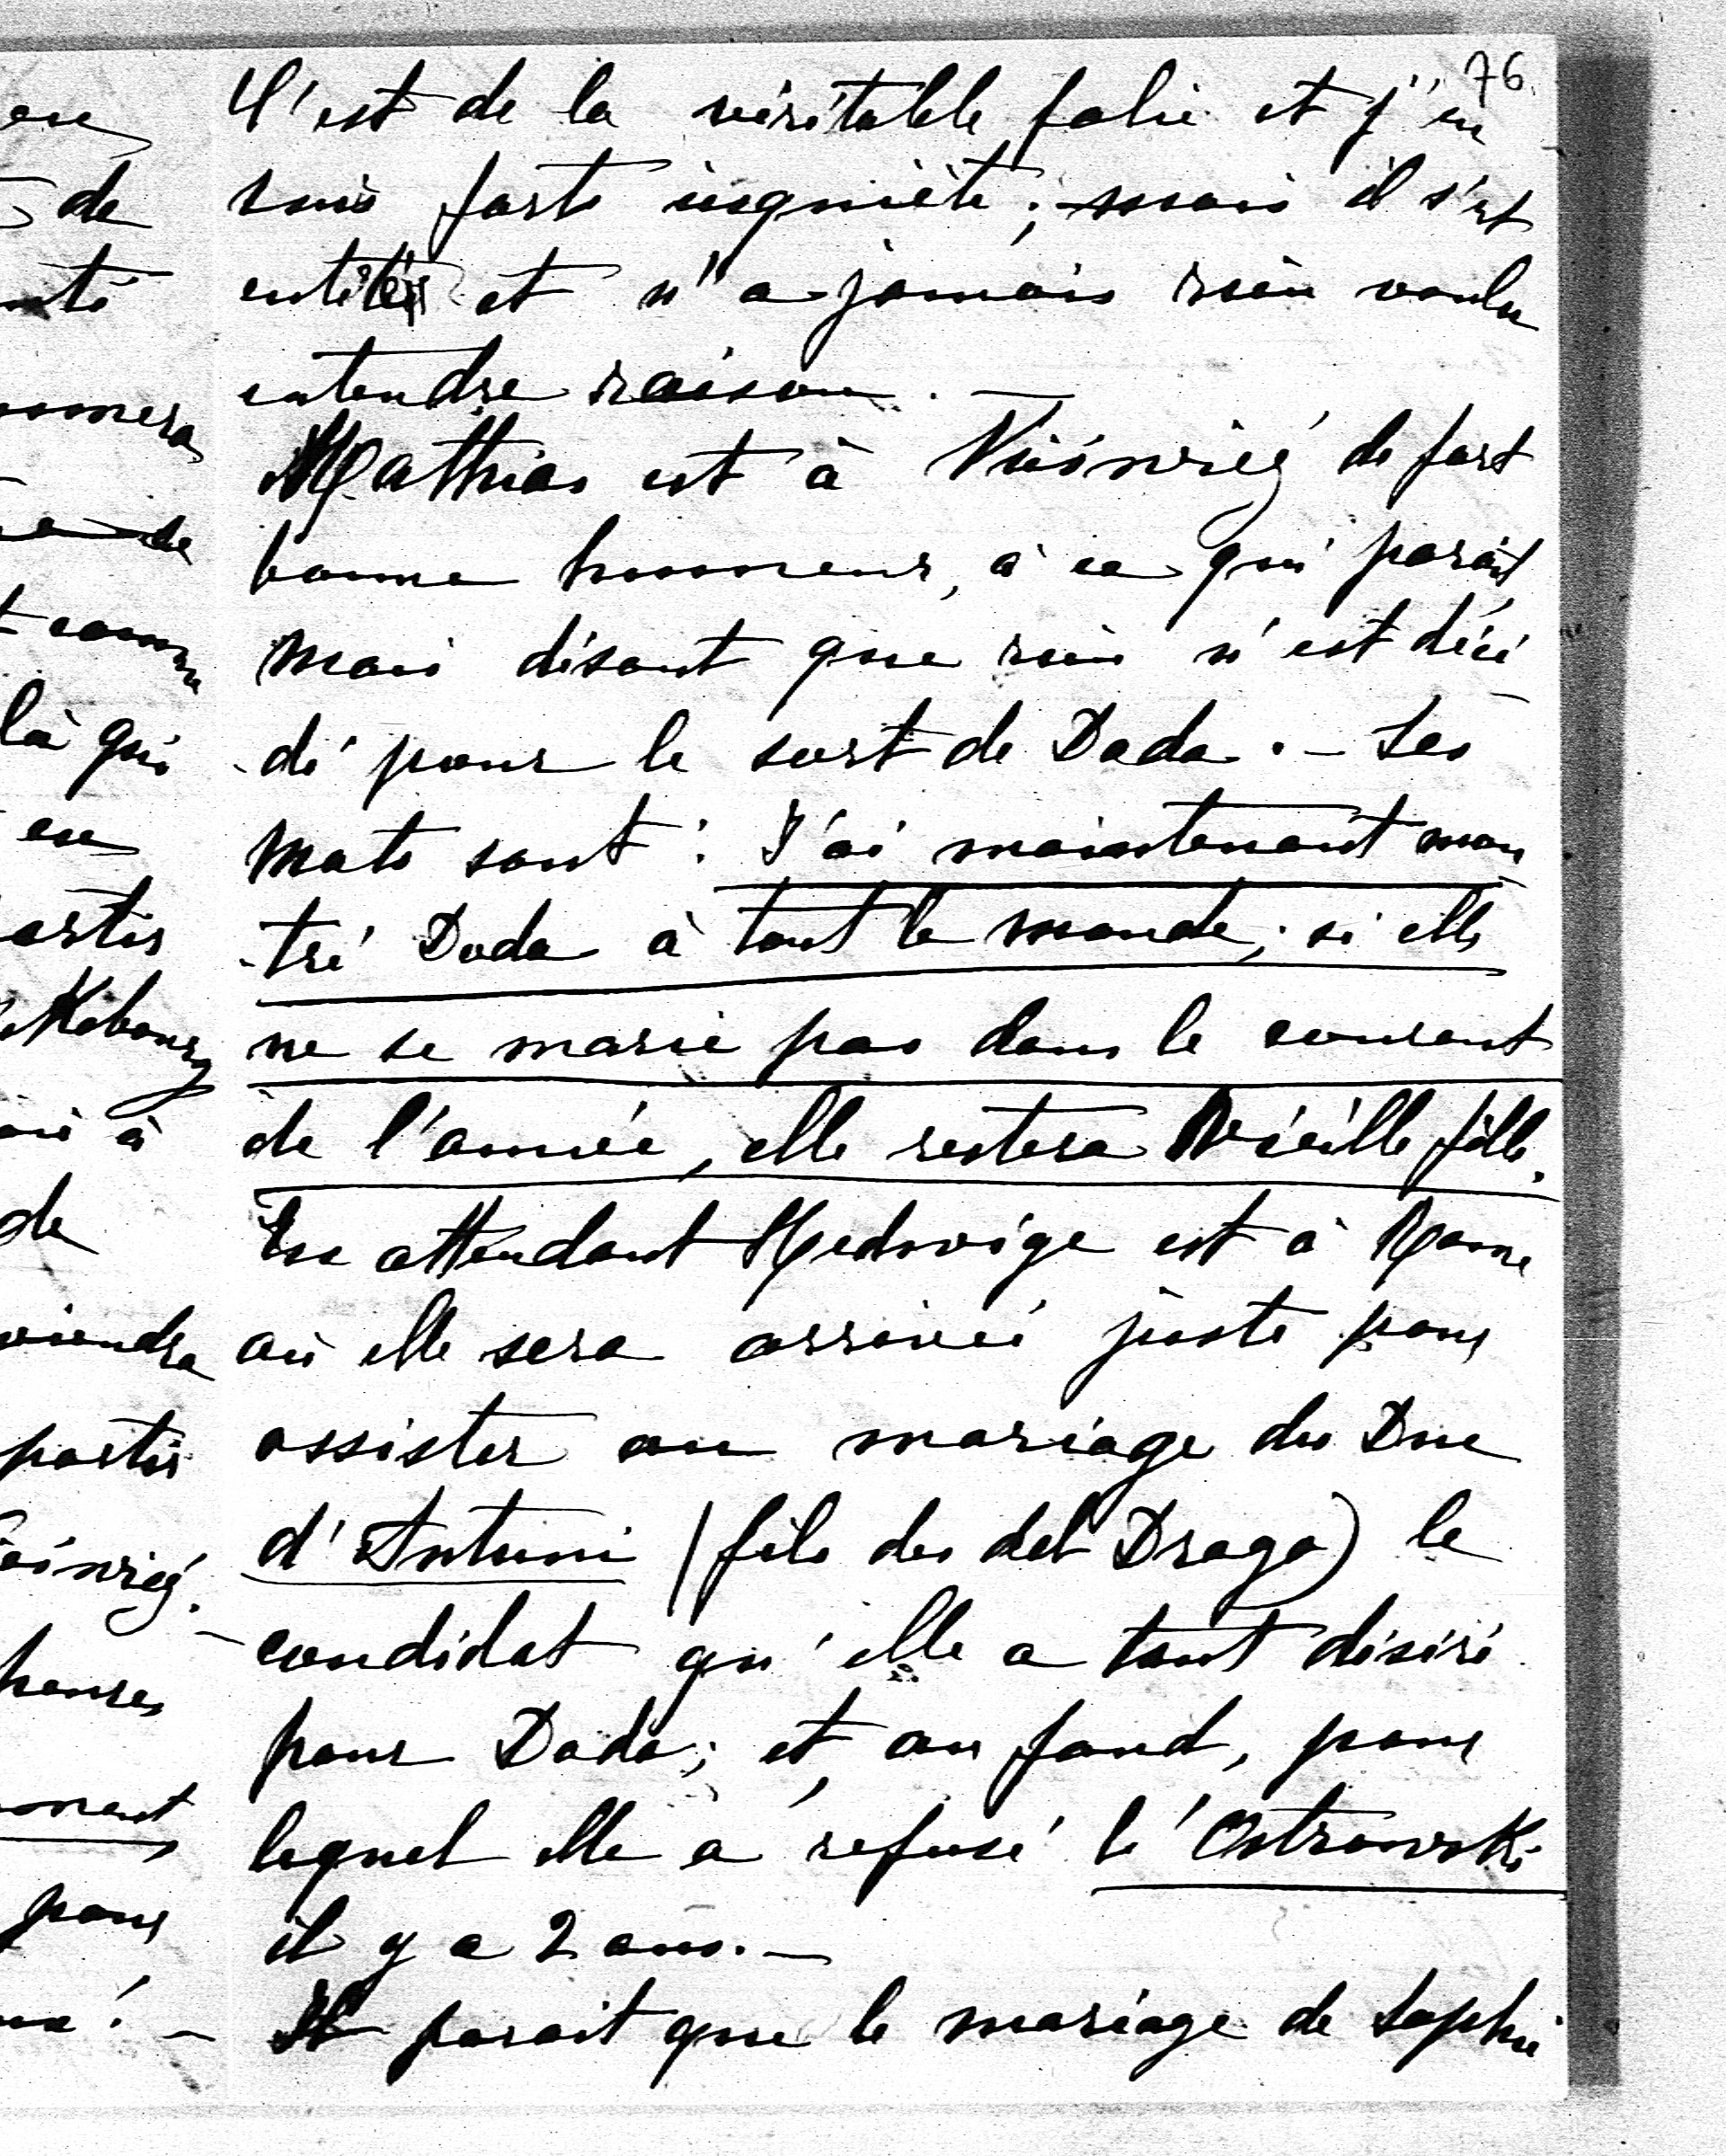 76
C'est de la véritable folie et j'en
suis forte inquiète ; mais il s'est
entêté et n'a jamais rien voulu
entendre raison. —
Mathias est à Nieśwież de fort
bonne humeur, à ce qui parait
mais disant que rien n'est déci
-dé pour le sort de Dada. - Ses
mots sont : J'ai maintenant mon
-tré Dada à tout le monde ; si elle
ne se marie pas dans le courant
de l'année, elle restera vieille fille.
En attendant Hedwige est à Rome
où elle sera arrivée juste pour
assister au mariage du Duc
d'Antuni (fils du del Drago) le
candidat qu'elle a tant désiré
pour Dada ; et, au fond, pour
lequel elle a refusé l'Ostrowski
il y a 2 ans. —
Il parait que le mariage de Sophie